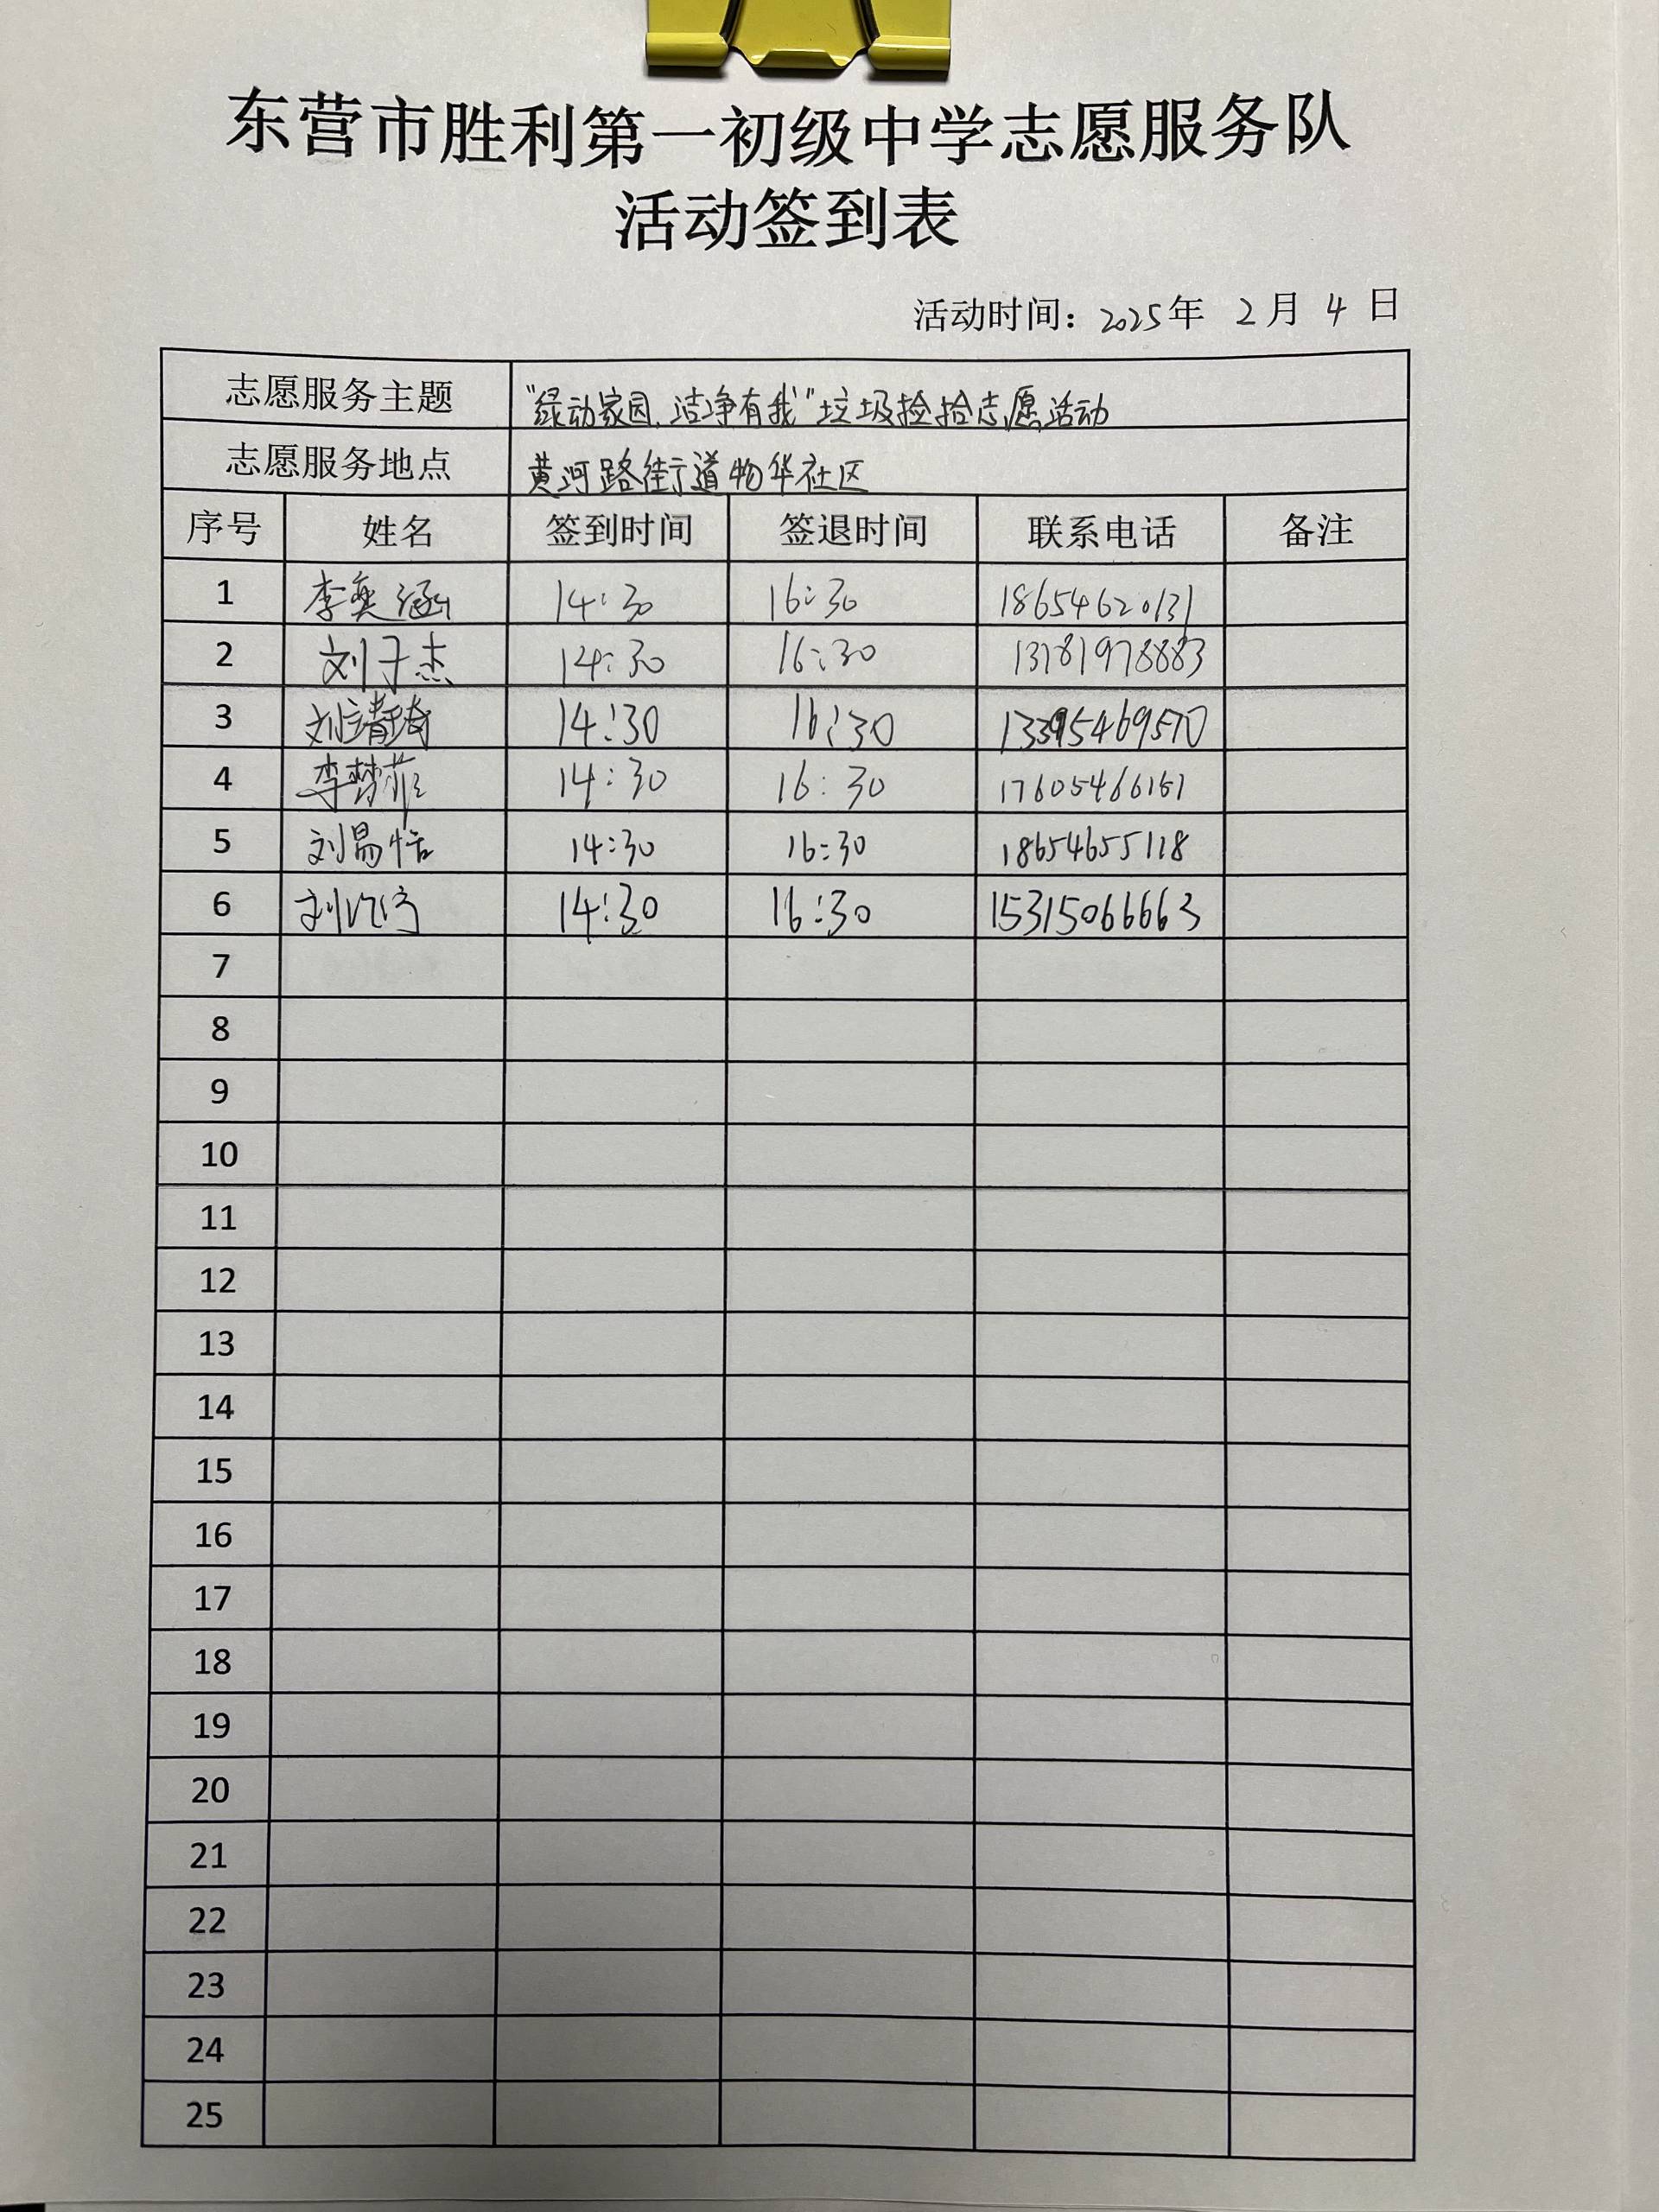 东营市胜利第一初级中学志愿服务队
活动签到表
活动时间：2025年 2月 4日
志愿服务主题 “绿动家园，洁净有我”垃圾捡拾志愿活动
志愿服务地点 黄河路街道物华社区
序号 姓名 签到时间 签退时间 联系电话 备注
1 李奕涵 14:30 16:30 18654620131
2 刘子杰 14:30 16:30 13781978883
3 刘靖琦 14:30 16:30 13395469570
4 李梦菲 14:30 16:30 17605466161
5 刘易恬 14:30 16:30 18654655118
6 刘 14:30 16:30 15315066663
7
8
9
10
11
12
13
14
15
16
17
18
19
20
21
22
23
24
25